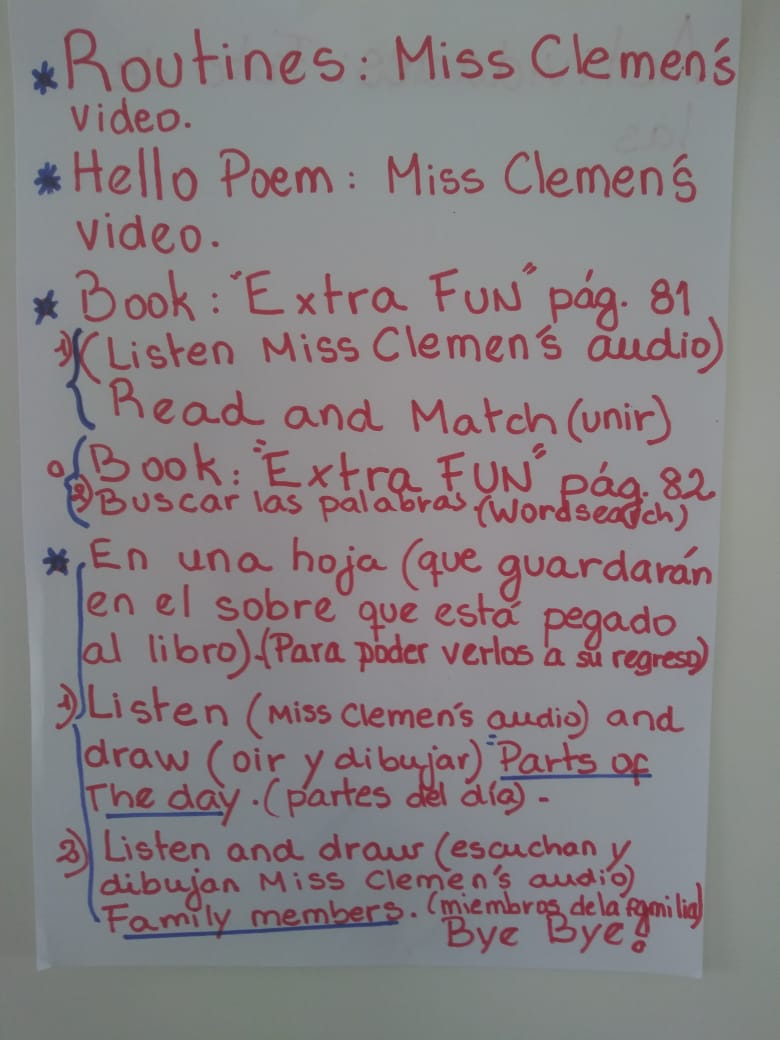 * Routines: Miss Clemen's
video.
* Hello Poem: Miss Clemen's
video.
* Book: "Extra FUN" pág. 81
1) (Listen Miss Clemen's audio)
Read and Match (unir)
o Book: "Extra FUN" pág. 82
2) Buscar las palabras. (Wordsearch)
* En una hoja (que guardarán
en el sobre que está pegado
al libro). (Para poder verlos a su regreso)
1) Listen (Miss Clemen's audio) and
draw (oir y dibujar) "Parts of
The day. (partes del día) -
2) Listen and draw (escuchan y
dibujan Miss Clemen's audio)
Family members. (miembros de la familia)
Bye Bye!